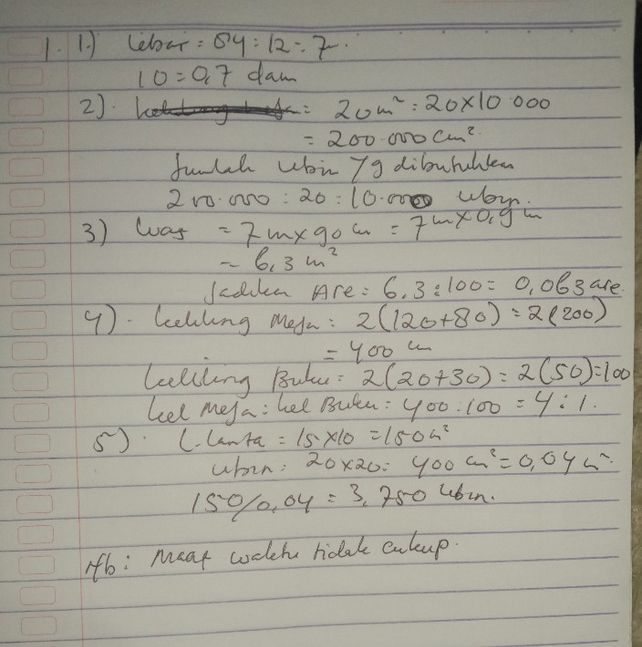 1. 1.) Lebar = 84 : 12 = 7
10 = 0,7 dam
2). = 20 m² = 20 x 10.000
= 200.000 cm²
Jumlah ubin yg dibutuhkan
200.000 : 20 = 10.000 ubin.
3) Luas = 7 m x 90 cm = 7 m x 0,9 m
= 6,3 m²
Jadikan Are = 6,3 : 100 = 0,063 are
4). keliling Meja = 2(120+80) = 2(200)
= 400 cm
keliling Buku = 2(20+30) = 2(50) = 100
kel Meja : kel Buku = 400 : 100 = 4 : 1.
5). L. lanta = 15 x 10 = 150 m²
ubin = 20x20 = 400 cm² = 0,04 m²
150/0,04 = 3.750 ubin.
Nb : Maaf waktu tidak cukup.